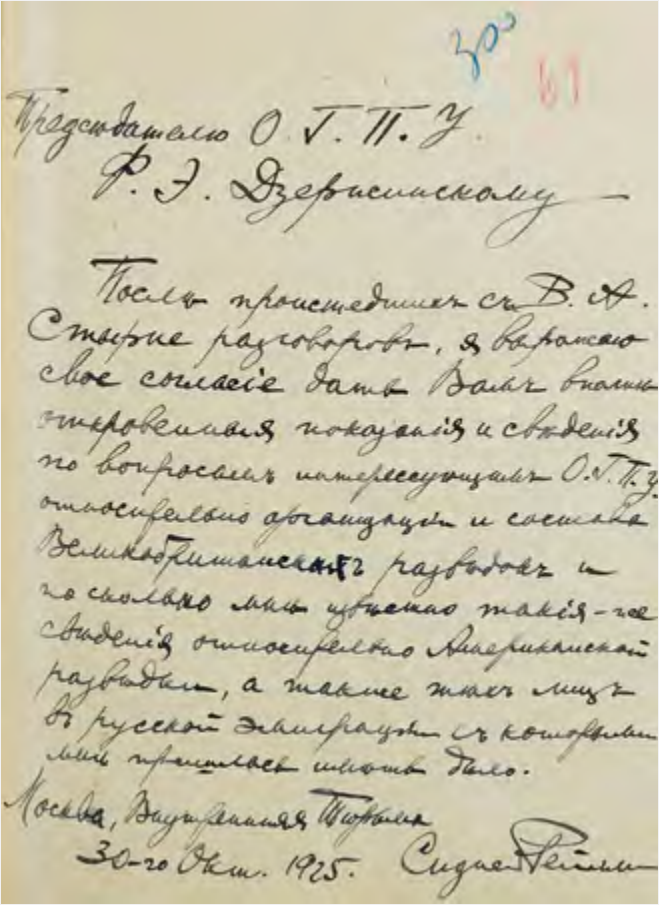 300
61
Предсѣдателю О. Г. П. У.
Ф. Э. Дзержинскому
Послѣ происшедшихъ съ В. А.
Стырне разговоровъ, я выражаю
свое согласіе дать Вамъ вполнѣ
откровенныя показанія и свѣдѣнія
по вопросамъ интересующимъ О.Г.П.У.
относительно организаціи и состава
Великобританскихъ развѣдокъ и
по сколько мнѣ извѣстно такія-же
свѣдѣнія относительно Американской
развѣдки, а также тѣхъ лицъ
въ русской эмиграціи съ которыми
мнѣ пришлось имѣть дѣло.
Москва, Внутренняя Тюрьма
30-го Окт. 1925. Сидней Рейлли